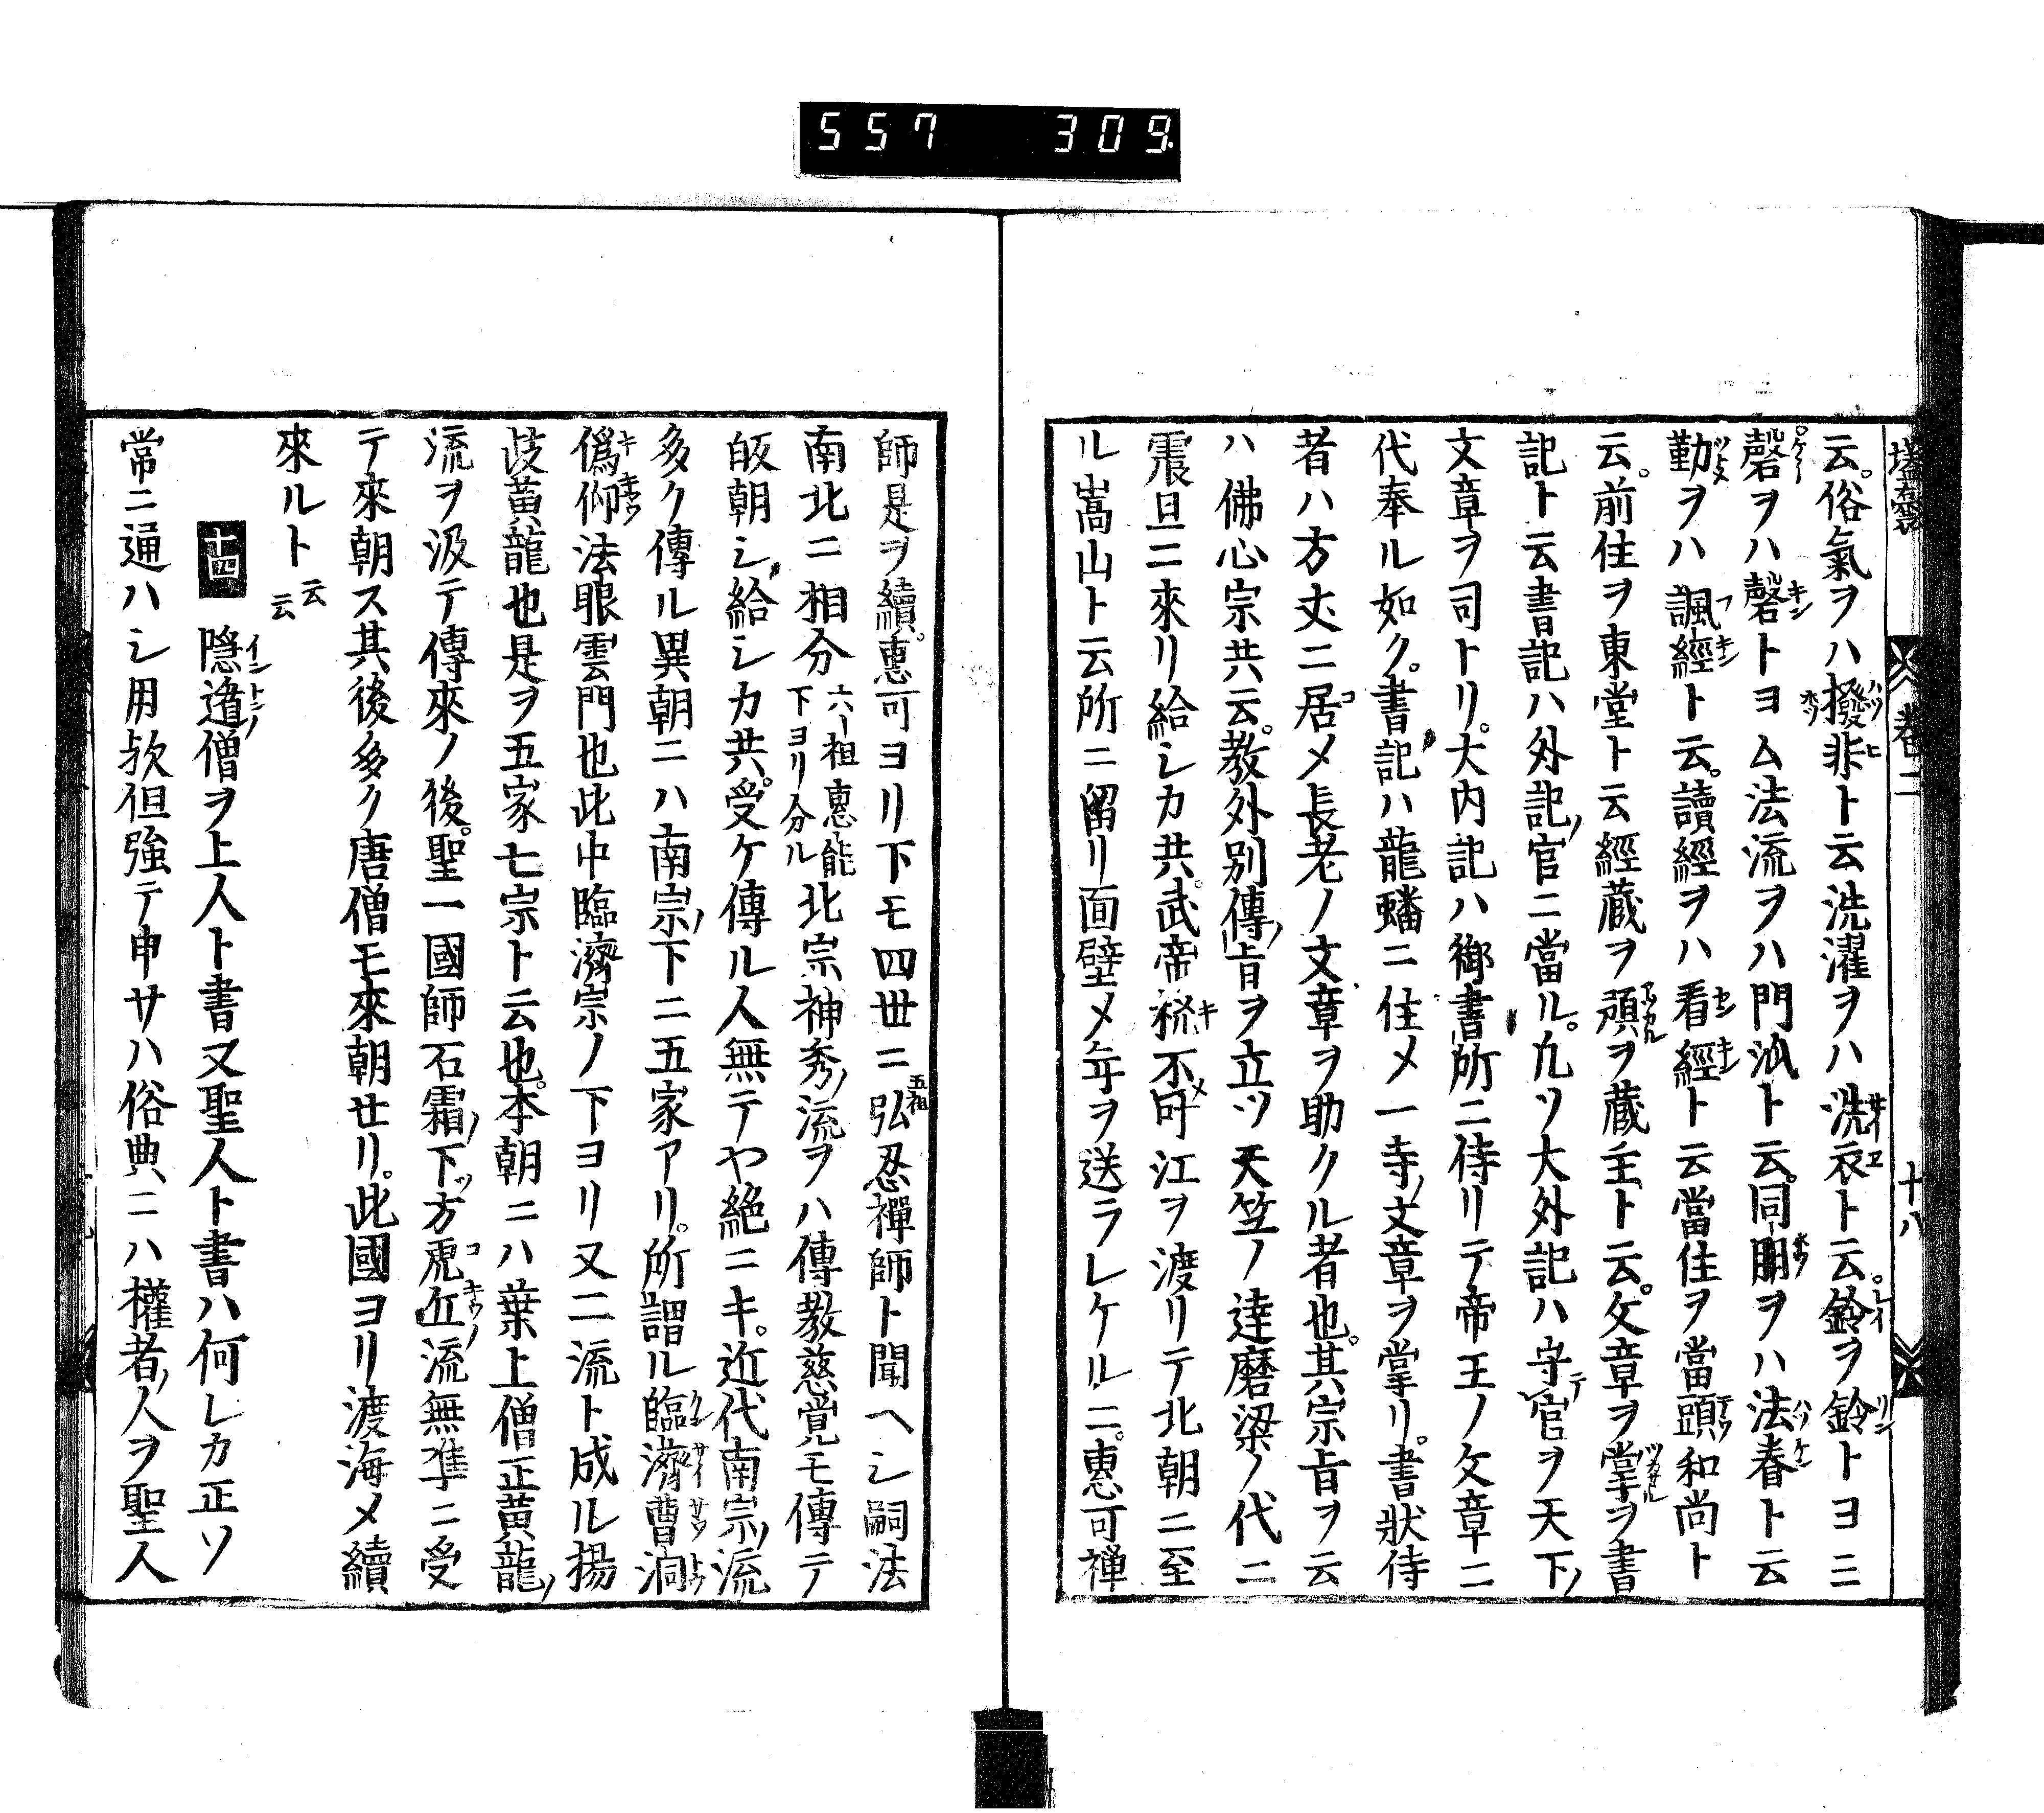 557 309
壒嚢 巻二 十八
云。俗氣ヲハ撥非ト云洗濯ヲハ洗衣ト云。鈴ヲ鈴トヨミ
磬ヲハ磬トヨム法流ヲハ門派ト云。同朋ヲハ法眷ト云
勤ヲハ諷經ト云。讀經ヲハ看經ト云當住ヲ當頭和尚ト
云。前住ヲ東堂ト云經蔵ヲ預ヲ蔵主ト云。文章ヲ掌ヲ書
記ト云書記ハ外記ノ官ニ當ル。凢ソ大外記ハ守官ヲ天下ノ
文章ヲ司トリ。大内記ハ御書所ニ侍リテ帝王ノ文章ニ
代奉ル如ク。書記ハ龍蟠ニ住メ一寺ノ文章ヲ掌リ。書狀侍
者ハ方丈ニ居メ長老ノ文章ヲ助クル者也。其宗旨ヲ云
ハ佛心宗共云。教外別傳ノ旨ヲ立ツ天笠ノ達磨梁ノ代ニ
震旦ニ來リ給シカ共。武帝機不叶江ヲ渡リテ北朝ニ至
ル嵩山ト云所ニ留リ面壁メ年ヲ送ラレケルニ。惠可禅
師是ヲ續。惠可ヨリ下モ四世ニ弘忍禪師ト聞ヘシ嗣法
五祖
南北ニ相分六ー祖惠能下ヨリ分ル北宗神秀ノ流ヲハ傳教慈覚モ傳テ
皈朝シ給シカ共。受ケ傳ル人無テや絶ニキ。近代南宗ノ流
多ク傳ル異朝ニハ南宗ノ下ニ五家アリ。所謂ル臨濟曹洞
僞仰法眼雲門也此中臨濟宗ノ下ヨリ又二流ト成ル揚
歧黄龍也是ヲ五家七宗ト云也。本朝ニハ葉上僧正黄龍ノ
流ヲ汲テ傳來ノ後。聖一國師石霜ノ下ツ方虎丘流無準ニ受
テ來朝ス其後多ク唐僧モ來朝セリ。此國ヨリ渡海メ續
來ルト云云
十四 隠遁僧ヲ上人ト書又聖人ト書ハ何レカ正ソ
常ニ通ハシ用欤但強テ申サハ俗典ニハ權者ノ人ヲ聖人